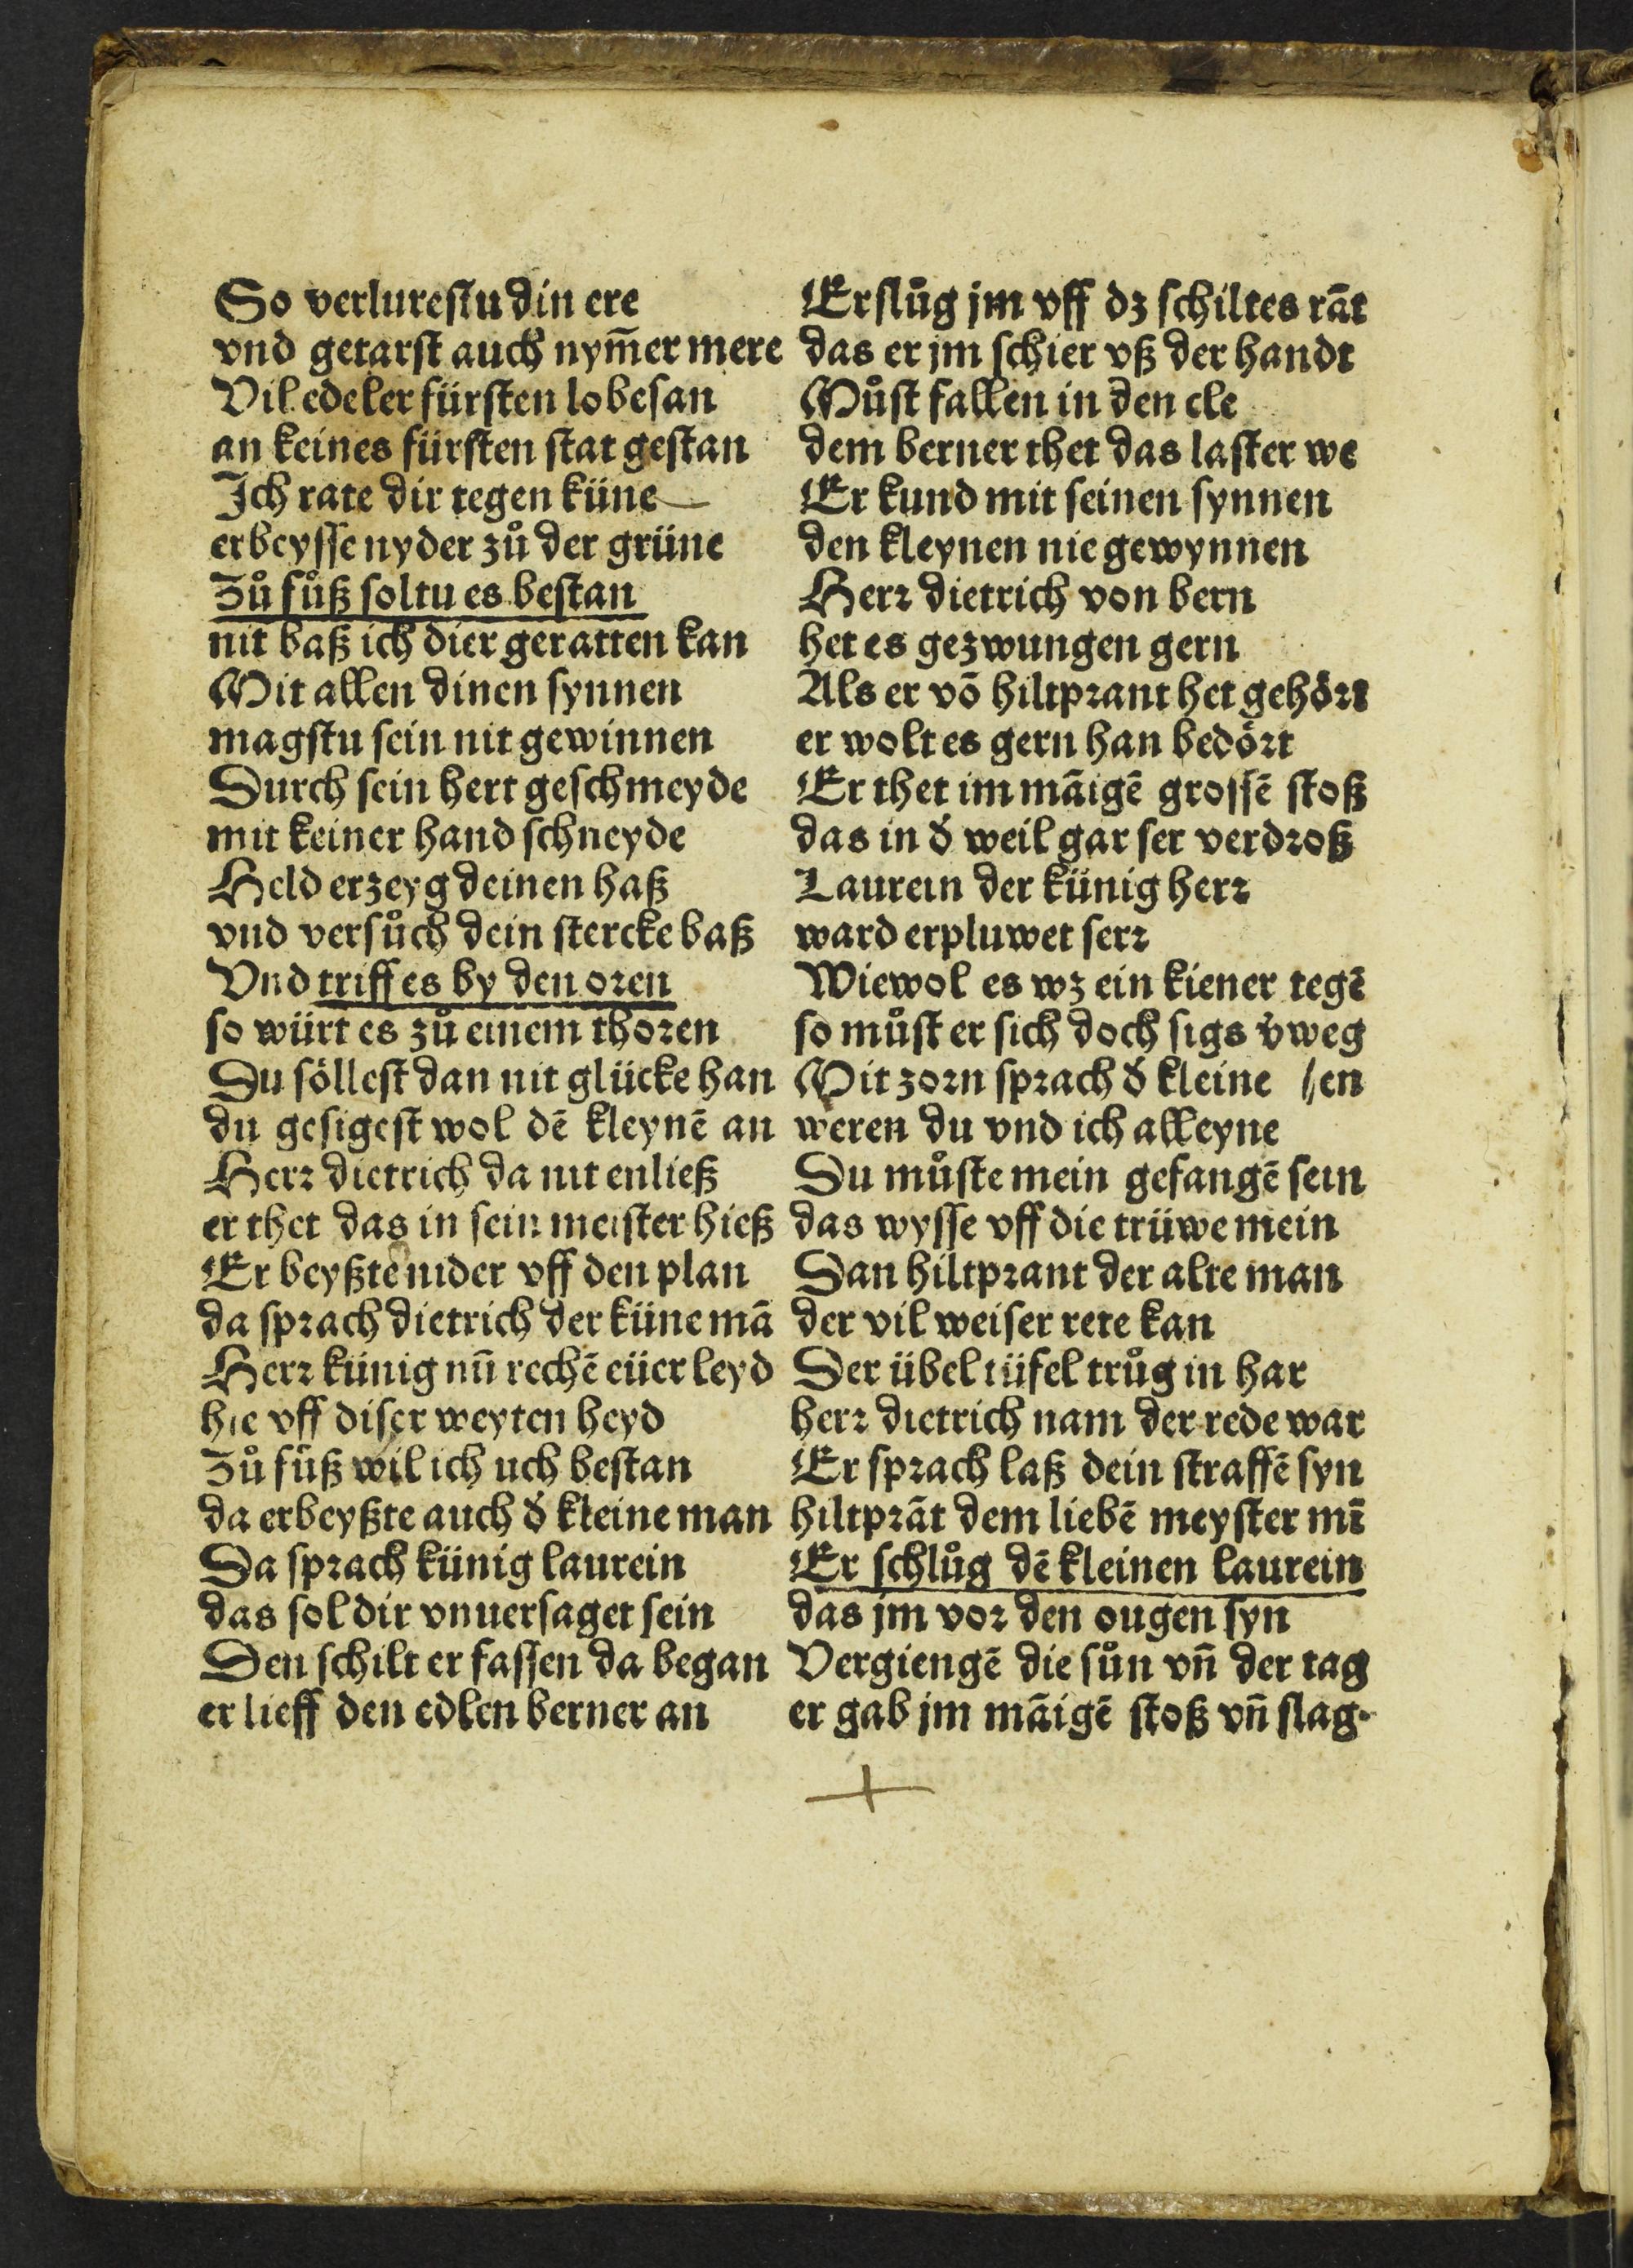 So verlurestu din ere
vnd getarst auch nym̄er mere
Vil edeler fürsten lobesan
an keines fürsten stat gestan
Ich rate dir tegen küne
erbeysse nyder zů der grüne
Zů fůß soltu es bestan
nit baß ich dier geratten kan
Mit allen dinen synnen
magstu sein nit gewinnen
Durch sein hert geschmeyde
mit keiner hand schneyde
Held erzeyg deinen haß
vnd versůch dein stercke baß
Vnd triff es by den oren
so würt es zů einem thoren
Du söllest dan nit glücke han
du gesigest wol dē kleynē an
Herr dietrich da nit enließ
er thet das in sein meister hieß
Er beyßte nider vff den plan
da sprach dietrich der küne mā
Herr künig nū rechē eüer leyd
hie vff diser weyten heyd
Zů fůß wil ich uch bestan
da erbeyßte auch d̕ kleine man
Da sprach künig laurein
das sol dir vnuersaget sein
Den schilt er fassen da began
er lieff den edlen berner an
Er slůg jm vff dz schiltes rāt
das er jm schier vß der handt
Můst fallen in den cle
dem berner thet das laster we
Er kund mit seinen synnen
den kleynen nie gewynnen
Herr dietrich von bern
het es gezwungen gern
Als er vō hiltprant het gehört
er wolt es gern han bedört
Er thet im māigē grossē stoß
das in d̕ weil gar ser verdroß
Laurein der künig herr
ward erpluwet serr
Wiewol es wz ein kiener tegē
so můst er sich doch sigs v̕weg
Mit zorn sprach d̕ kleine /en
weren du vnd ich alleyne
Du můste mein gefangē sein
das wysse vff die trüwe mein
Dan hiltprant der alte man
der vil weiser rete kan
Der übel tüfel trůg in har
herr dietrich nam der rede war
Er sprach laß dein straffē syn
hiltprāt dem liebē meyster mī
Er schlůg dē kleinen laurein
das jm vor den ougen syn
Vergiengē die sůn vn̄ der tag
er gab jm māigē stoß vn̄ slag.